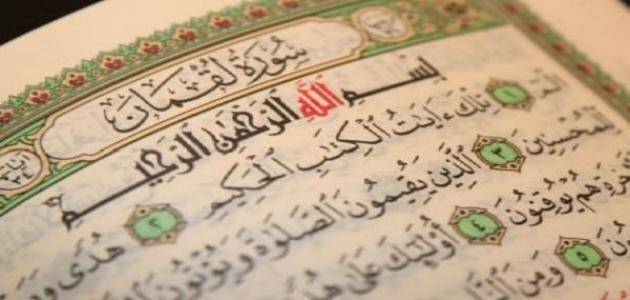 سُورَةُ لُقْمَانَ
بِسْمِ اللَّهِ الرَّحْمَٰنِ الرَّحِيمِ
الٓمٓ ١ تِلْكَ ءَايَٰتُ الْكِتَٰبِ الْحَكِيمِ ٢ هُدًى
لِّلْمُحْسِنِينَ ٣ الَّذِينَ يُقِيمُونَ الصَّلَوٰةَ وَيُؤْتُونَ
هُمْ يُوقِنُونَ ٤ أُولَٰٓئِكَ عَلَىٰ
٥ وَمِنَ